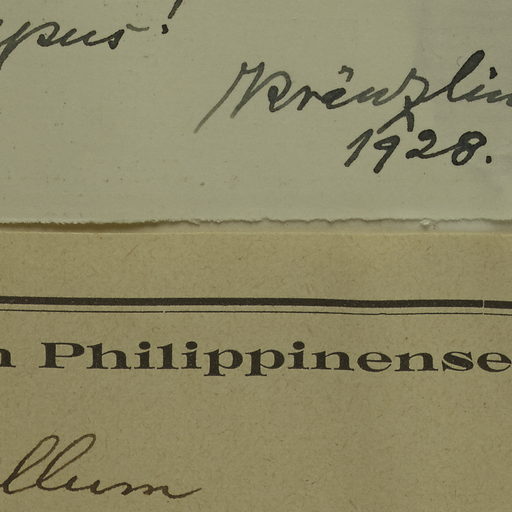 ypus!
Kränzlin
1928.
n Philippinense
llum